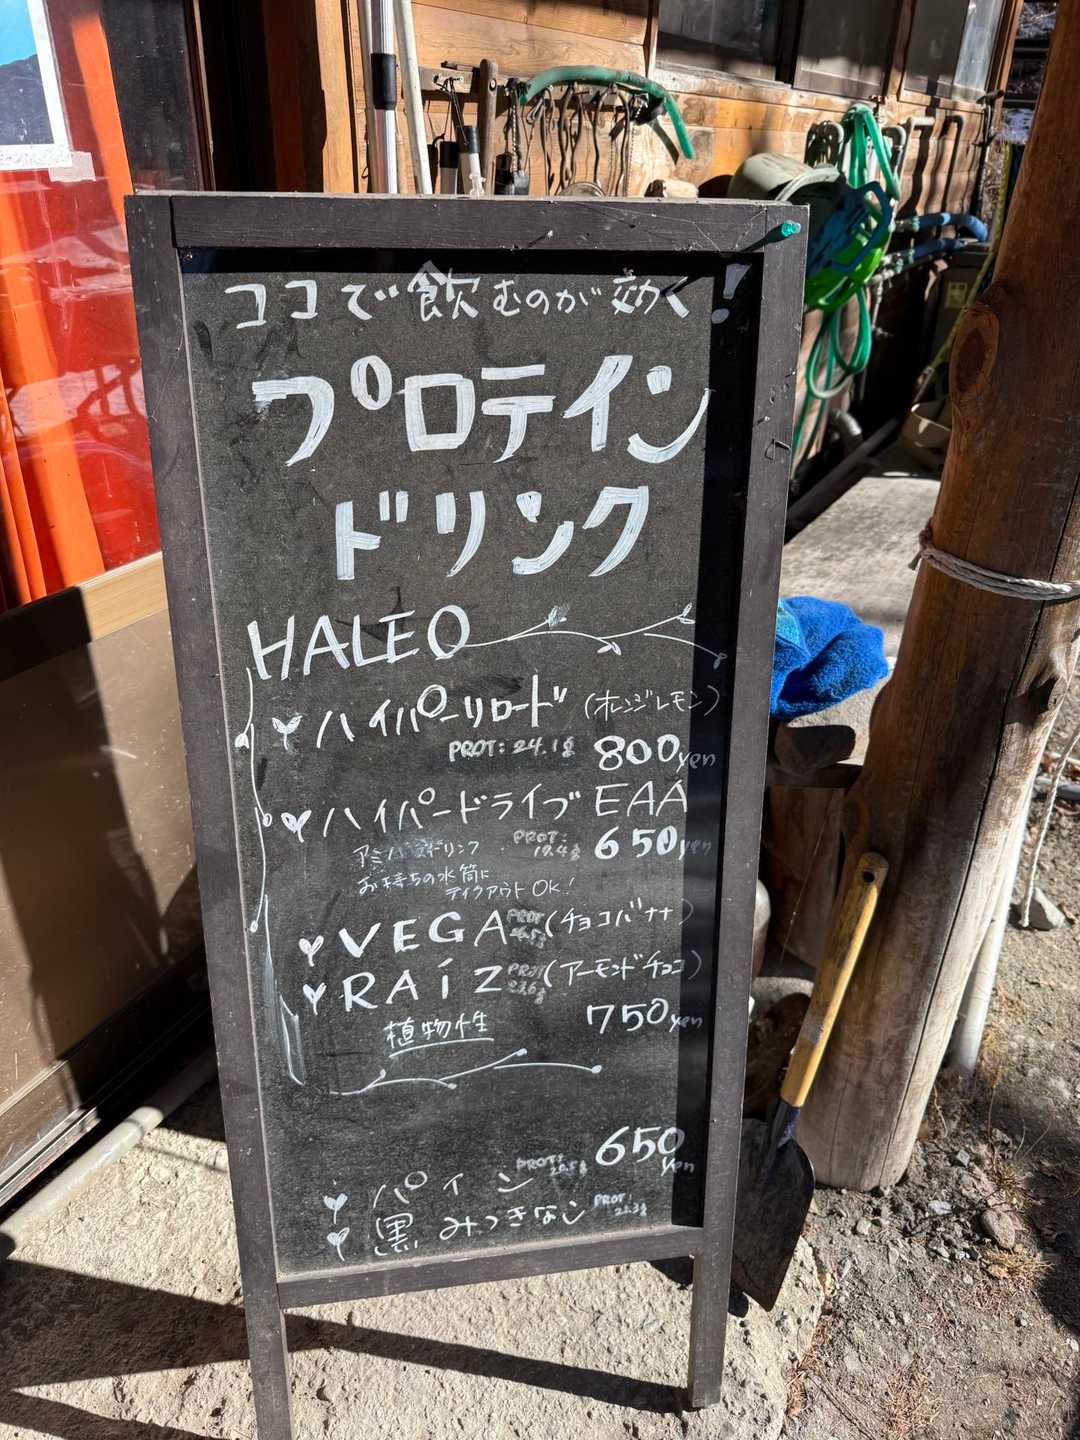 ココで飲むのが効く!
プロテイン
ドリンク
HALEO
ハイパーリロード (オレンジレモン)
PROT: 24.1g 800yen
ハイパードライブ EAA
アミノ酸ドリンク PROT: 19.4g 650yen
お持ちの水筒に
テイクアウトOK!
VEGA PROT (チョコバナナ)
RAíZ PROT 23.6g (アーモンドチョコ)
植物性 750yen
650yen
パイン PROT: 20.5g
黒みつきなこ PROT: